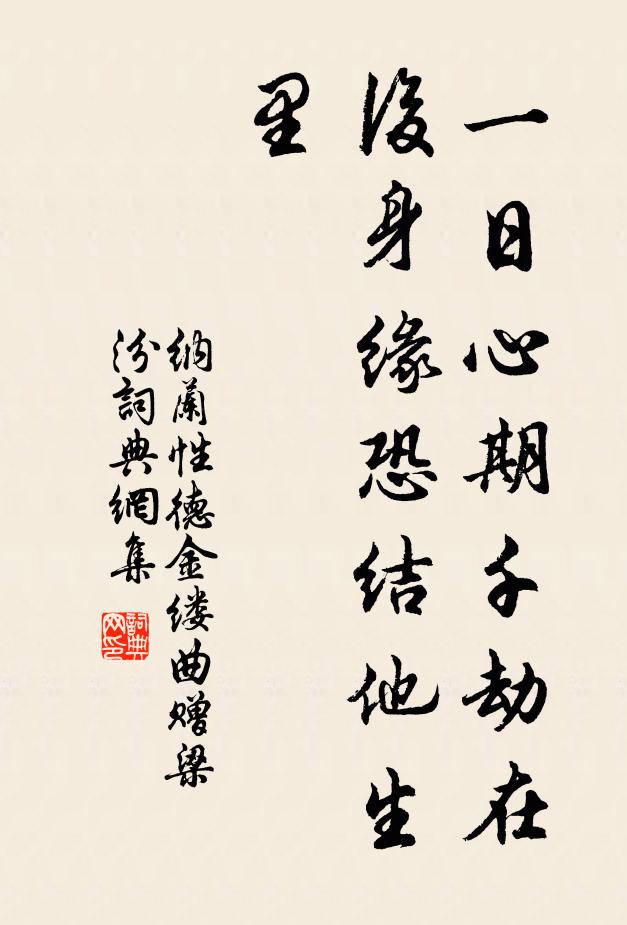 一日心期千劫在
後身緣恐結他生
里
納蘭性德金缕曲贈梁
汾詞典網集
詞典
网印